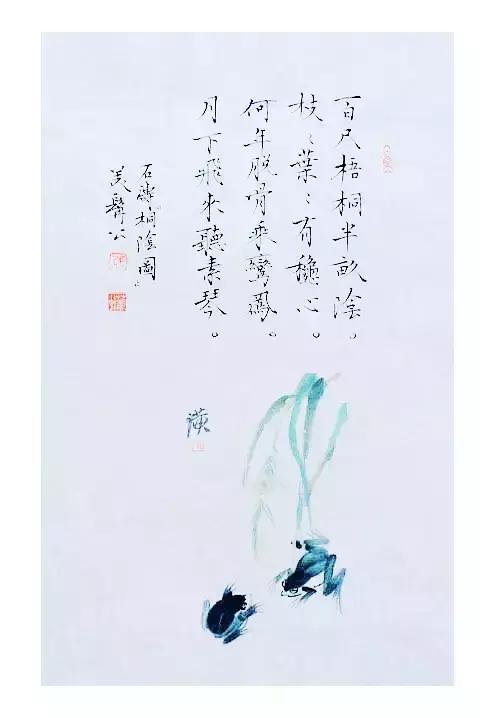 百尺梧桐半畝陰。
枝〻葉〻有穐心。
何年脫骨乘鸞鳳。
月下飛來聽素琴。
石濤『桐陰圖』
美髯公